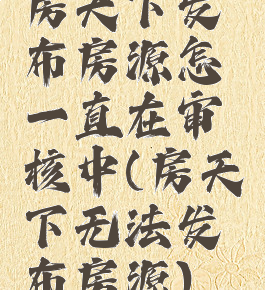 房天下发
布房源怎
一直在审
核中(房天
下无法发
布房源)